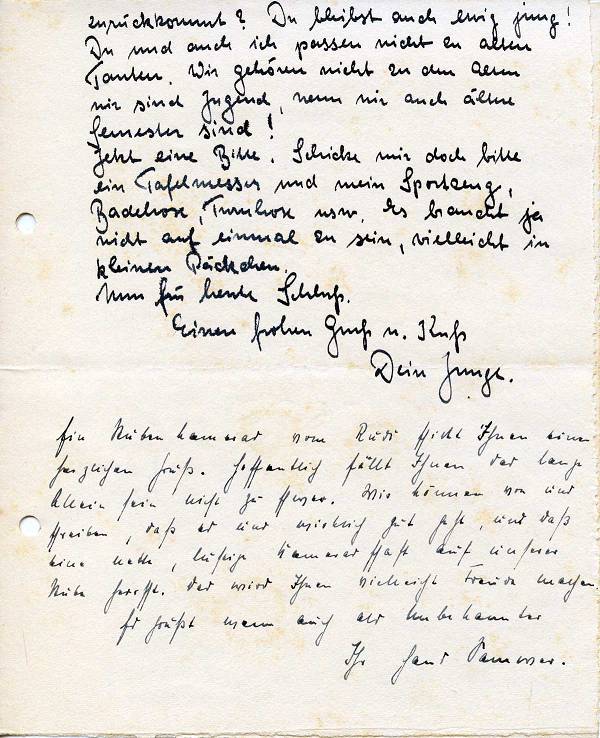 zurückkommt? Du bleibst auch ewig jung!
Du und auch ich passen nicht zu alten
Tanten. Wir gehören nicht zu den Alten
wir sind Jugend, wenn wir auch ältere
Semester sind!
Jetzt eine Bitte. Schicke mir doch bitte
ein Tafelmesser und mein Sportzeug,
Badehose, Turnhose usw. Es braucht ja
nicht auf einmal zu sein, vielleicht in
kleinen Päckchen.
Nun für heute Schluß.
Einen frohen Gruß u. Kuß
Dein Junge.
Ein Stubenkamerad vom Rudi schickt Ihnen einen
herzlichen Gruß. Hoffentlich fällt Ihnen das lange
Allein sein nicht zu schwer. Wir können von uns
schreiben, daß es uns wirklich gut geht, und daß
eine nette, lustige Kameradschaft auf unserer
Stube herrscht. Das wird Ihnen vielleicht Freude machen.
Es grüßt wenn auch als Unbekannter
Ihr Hans